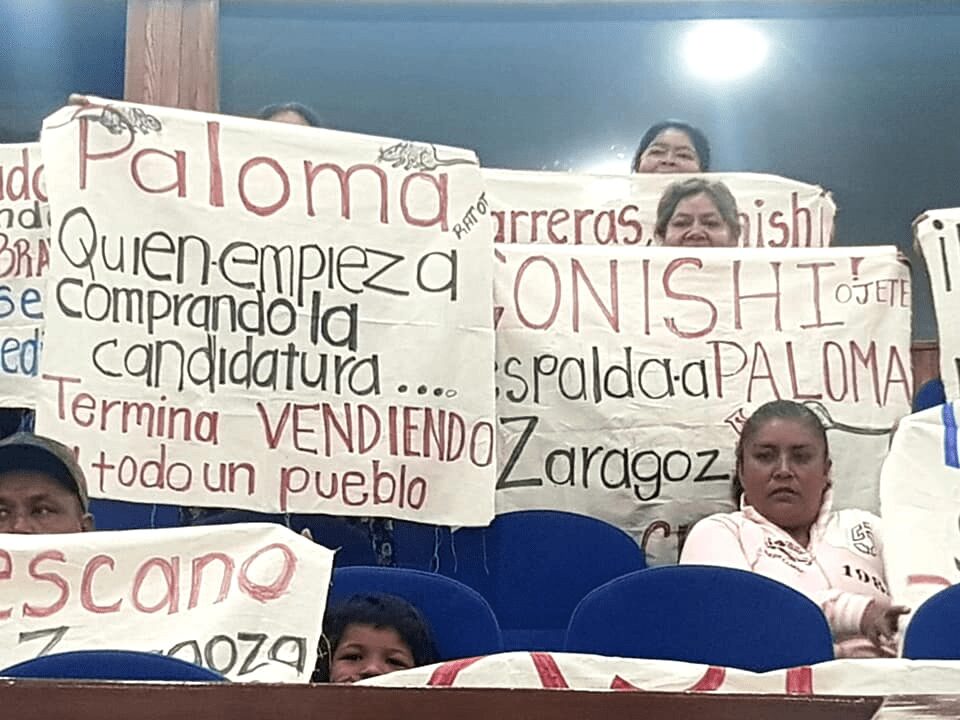 Paloma
RATOT
Quien empieza
comprando la
candidatura ....
Termina VENDIENDO
todo un pueblo
arreras,
nishi
GONISHI!
OJETE
espalda a PALOMA
Zaragoz
escano
Zaragoza
se
ed
BRA
198